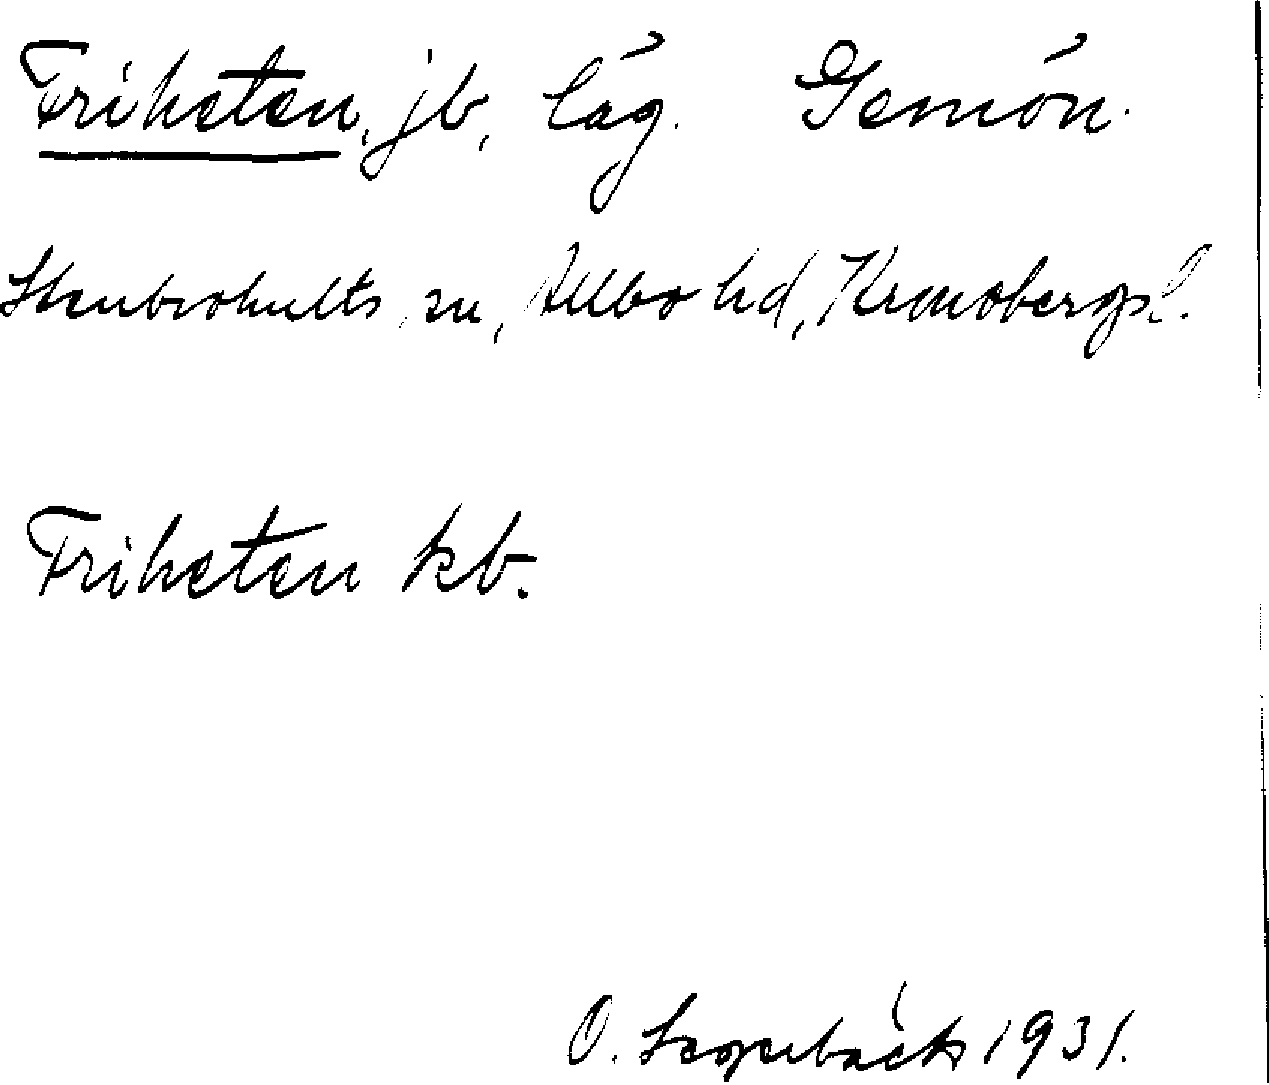 Friheten, jb, läg. Gemön.
Stenbrohults sn, Allbo hd, Kronobergs l.
Friheten kb.
O. Segerbäck 1931.